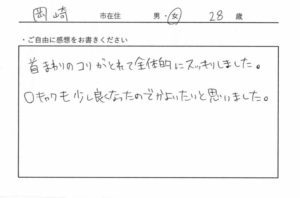 岡崎 市在住 男・女 28 歳
・ご自由に感想をお書きください
首まわりのコリがとれて全体的にスッキリしました。
O キャクも少し良くなったのでかよいたいと思いました。